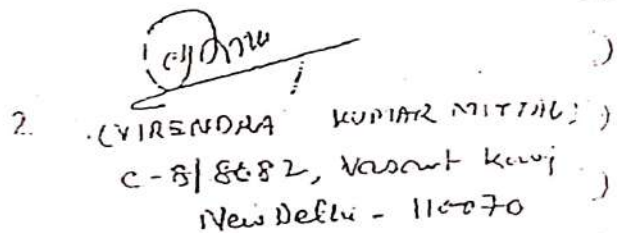 2. (VIRENDRA KUMAR MITTAL)
C-8/8682, Vasant Kunj
New Delhi - 110070